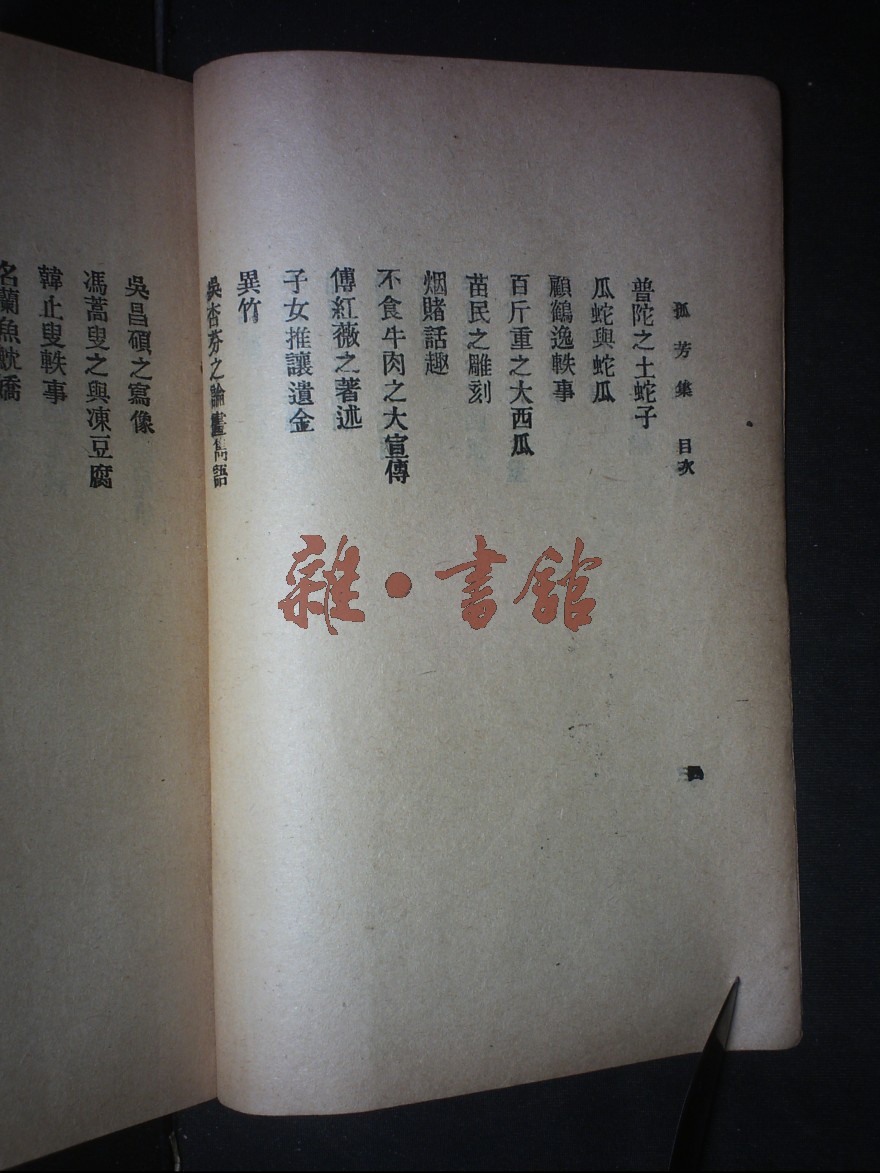 孤芳集 目次
普陀之土蛇子
瓜蛇與蛇瓜
顧鶴逸軼事
百斤重之大西瓜
苗民之雕刻
烟賭話趣
不食牛肉之大宣傳
傅紅薇之著述
子女推讓遺金
異竹
吳杏芬之論畫雋語
吳昌碩之寫像
馮蒿叟之與凍豆腐
韓止叟軼事
名蘭魚魫
雜·書館